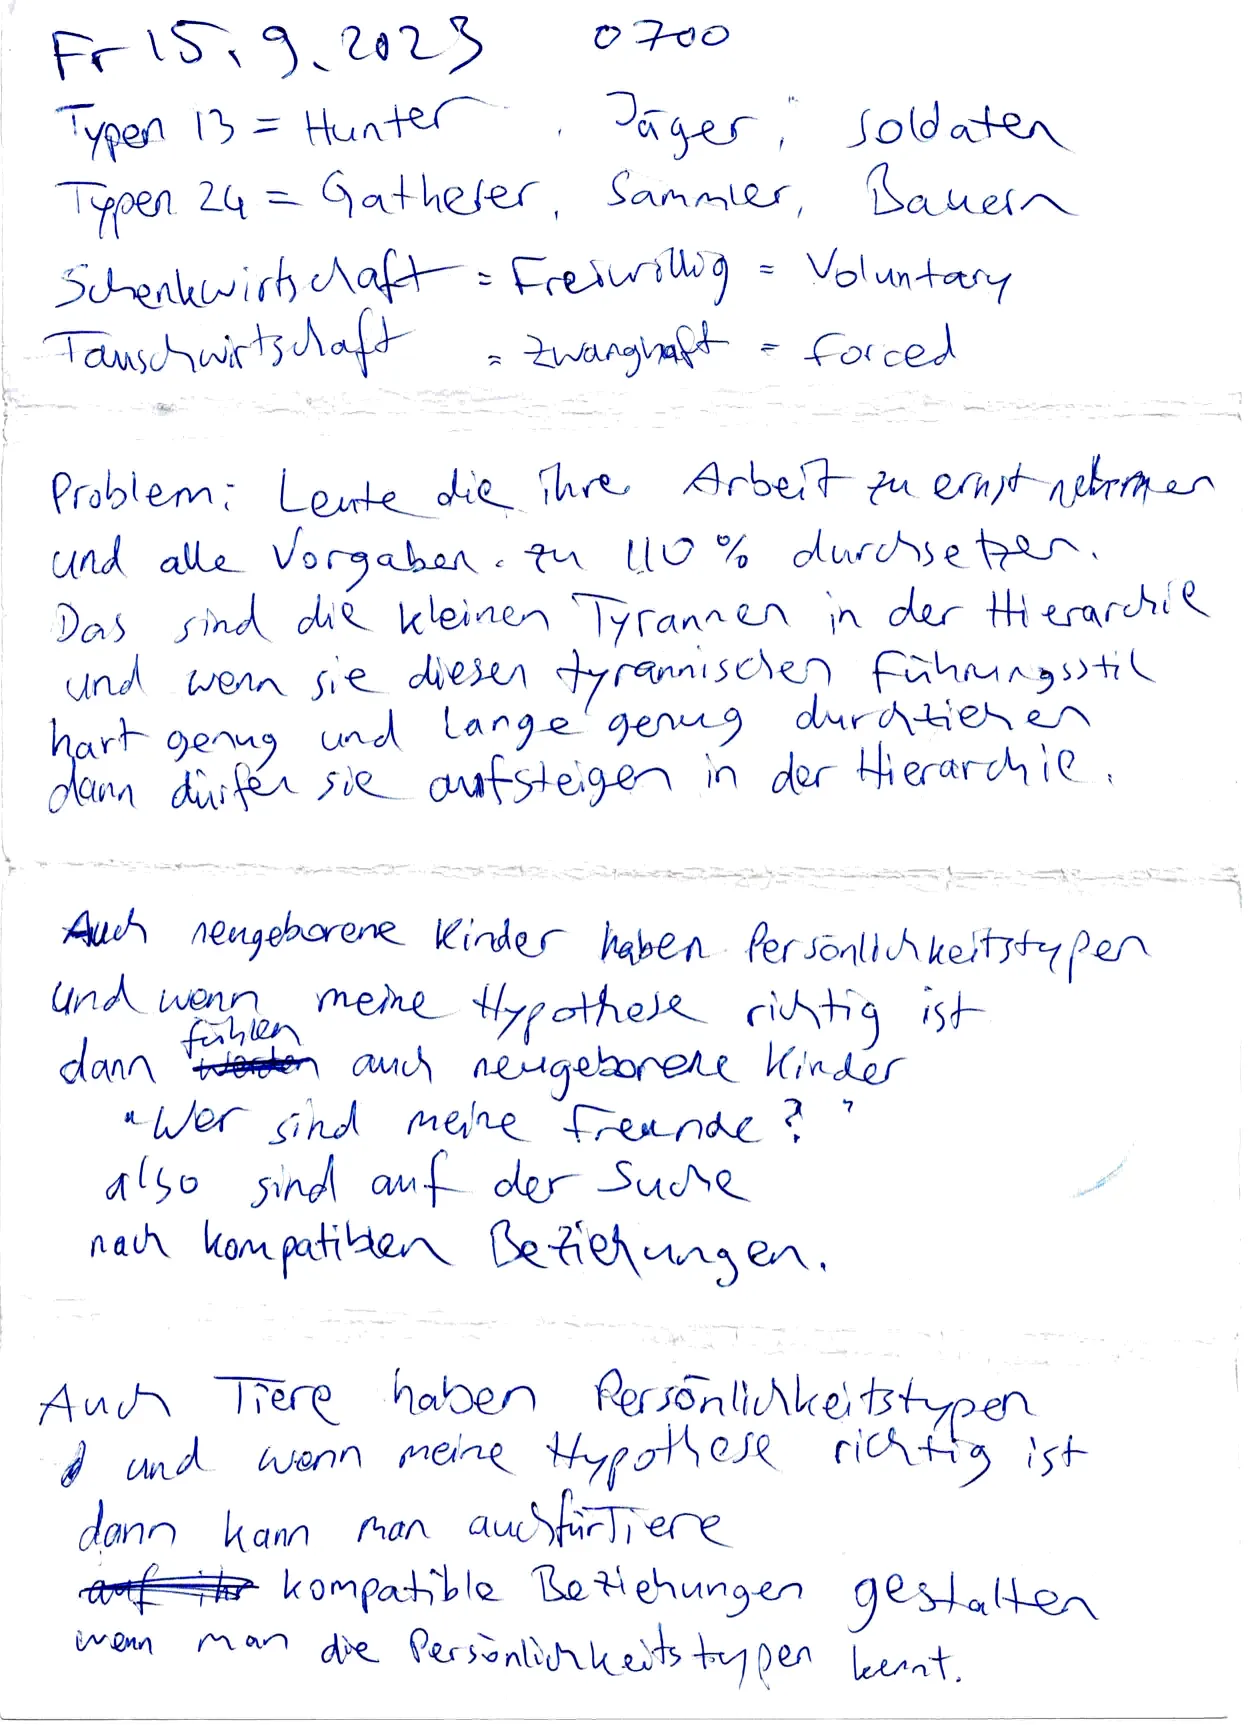 Fr 15.9.2023 0700
Typen 13 = Hunter, Jäger, Soldaten
Typen 24 = Gatherer, Sammler, Bauern
Schenkwirtschaft = Freiwillig = Voluntary
Tauschwirtschaft = zwanghaft = forced
Problem: Leute die ihre Arbeit zu ernst nehmen
und alle Vorgaben zu 110% durchsetzen.
Das sind die kleinen Tyrannen in der Hierarchie
und wenn sie diesen tyrannischen Führungsstil
hart genug und lange genug durchziehen
dann dürfen sie aufsteigen in der Hierarchie.
Auch neugeborene Kinder haben Persönlichkeitstypen
und wenn meine Hypothese richtig ist
dann fühlen auch neugeborene Kinder
"Wer sind meine Freunde?"
also sind auf der Suche
nach kompatiblen Beziehungen.
Auch Tiere haben Persönlichkeitstypen
und wenn meine Hypothese richtig ist
dann kann man auch für Tiere
kompatible Beziehungen gestalten
wenn man die Persönlichkeitstypen kennt.